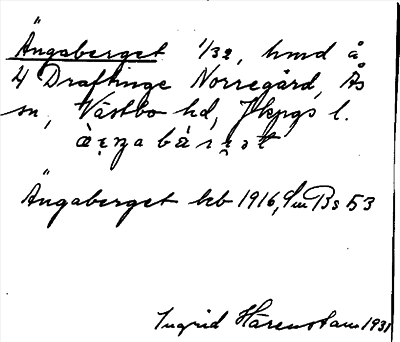 Ängaberget 1/32, hmd å
4 Draftinge Norregård, Ås
sn, Västbo hd, Jkpgs l.
Ängaberget kb 1916, GmBs 53
Ingrid Härenstam 1931